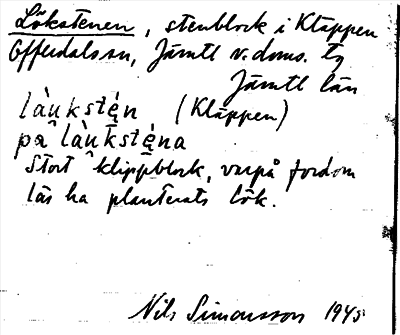 Lökstenen, stenblock i Kläppen
Offerdals sn, Jämtl v. doms. tg
Jämtl län
làukstę́n (Kläppen)
på làukstę́na
Stort klippblock, varpå fordom
läs ha planterats lök.
Nils Simonsson 1945